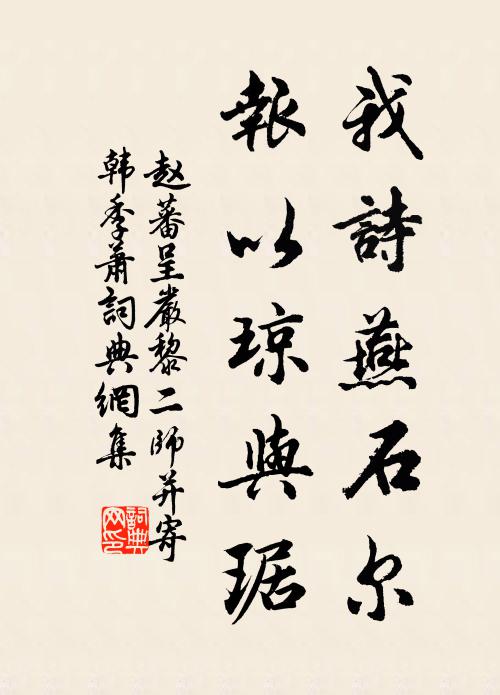 我詩燕石尔
報以琼與琚
赵蕃呈嚴黎二師并寄
韩季蕭詞典網集
詞典网印